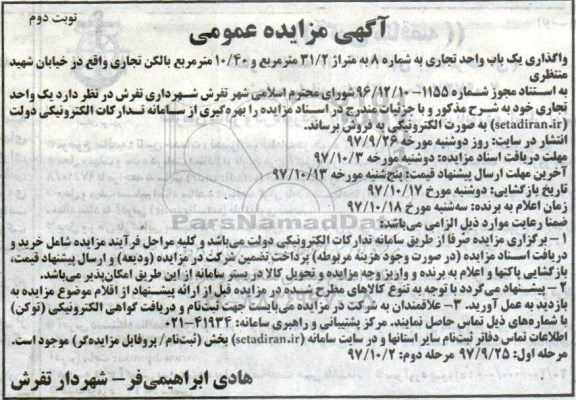 نوبت دوم
آگهی مزایده عمومی
واگذاری یک باب واحد تجاری به شماره ۸ به متراژ ۳۱/۲ مترمربع و ۱۰/۴۰ مترمربع بالکن تجاری واقع در خیابان شهید
منتظری
به استناد مجوز شماره ۱۱۵۵-۹۶/۱۲/۱۰ شورای محترم اسلامی شهر تفرش شهرداری تفرش در نظر دارد یک واحد
تجاری خود به شرح مذکور و با جزئیات مندرج در اسناد مزایده را بهره‌گیری از سامانه تدارکات الکترونیکی دولت
(setadiran.ir) به صورت الکترونیکی به فروش برساند.
انتشار در سایت: روز دوشنبه مورخه ۹۷/۹/۲۶
مهلت دریافت اسناد مزایده: دوشنبه مورخه ۹۷/۱۰/۳
آخرین مهلت ارسال پیشنهاد قیمت: پنج‌شنبه مورخه ۹۷/۱۰/۱۳
تاریخ بازگشایی: دوشنبه مورخ ۹۷/۱۰/۱۷
زمان اعلام به برنده: سه‌شنبه مورخ ۹۷/۱۰/۱۸
ParsNamadData
ضمنا رعایت موارد ذیل الزامی می‌باشد:
۱ - برگزاری مزایده صرفا از طریق سامانه تدارکات الکترونیکی دولت می‌باشد و کلیه مراحل فرآیند مزایده شامل خرید و
دریافت اسناد مزایده (در صورت وجود هزینه مربوطه) پرداخت تضمین شرکت در مزایده (ودیعه) و ارسال پیشنهاد قیمت،
بازگشایی پاکتها و اعلام به برنده و واریز وجه مزایده و تحویل کالا در بستر سامانه از این طریق امکان‌پذیر می‌باشد.
۲ - پیشنهاد می‌گردد با توجه به تنوع کالاهای مطرح شده در مزایده قبل از ارائه پیشنهاد از اقلام موضوع مزایده به
بازدید به عمل آورید. ۳- علاقمندان به شرکت در مزایده می‌بایست جهت ثبت‌نام و دریافت گواهی الکترونیکی (توکن)
با شماره‌های ذیل تماس حاصل نمایند. مرکز پشتیبانی و راهبری سامانه: ۴۱۹۳۴-۰۲۱
اطلاعات تماس دفاتر ثبت‌نام سایر استانها و در سایت سامانه (setadiran.ir) بخش (ثبت‌نام/ پروفایل مزایده‌گر) موجود است.
مرحله اول: ۹۷/۹/۲۵ مرحله دوم: ۹۷/۱۰/۲
هادی ابراهیمی‌فر - شهردار تفرش